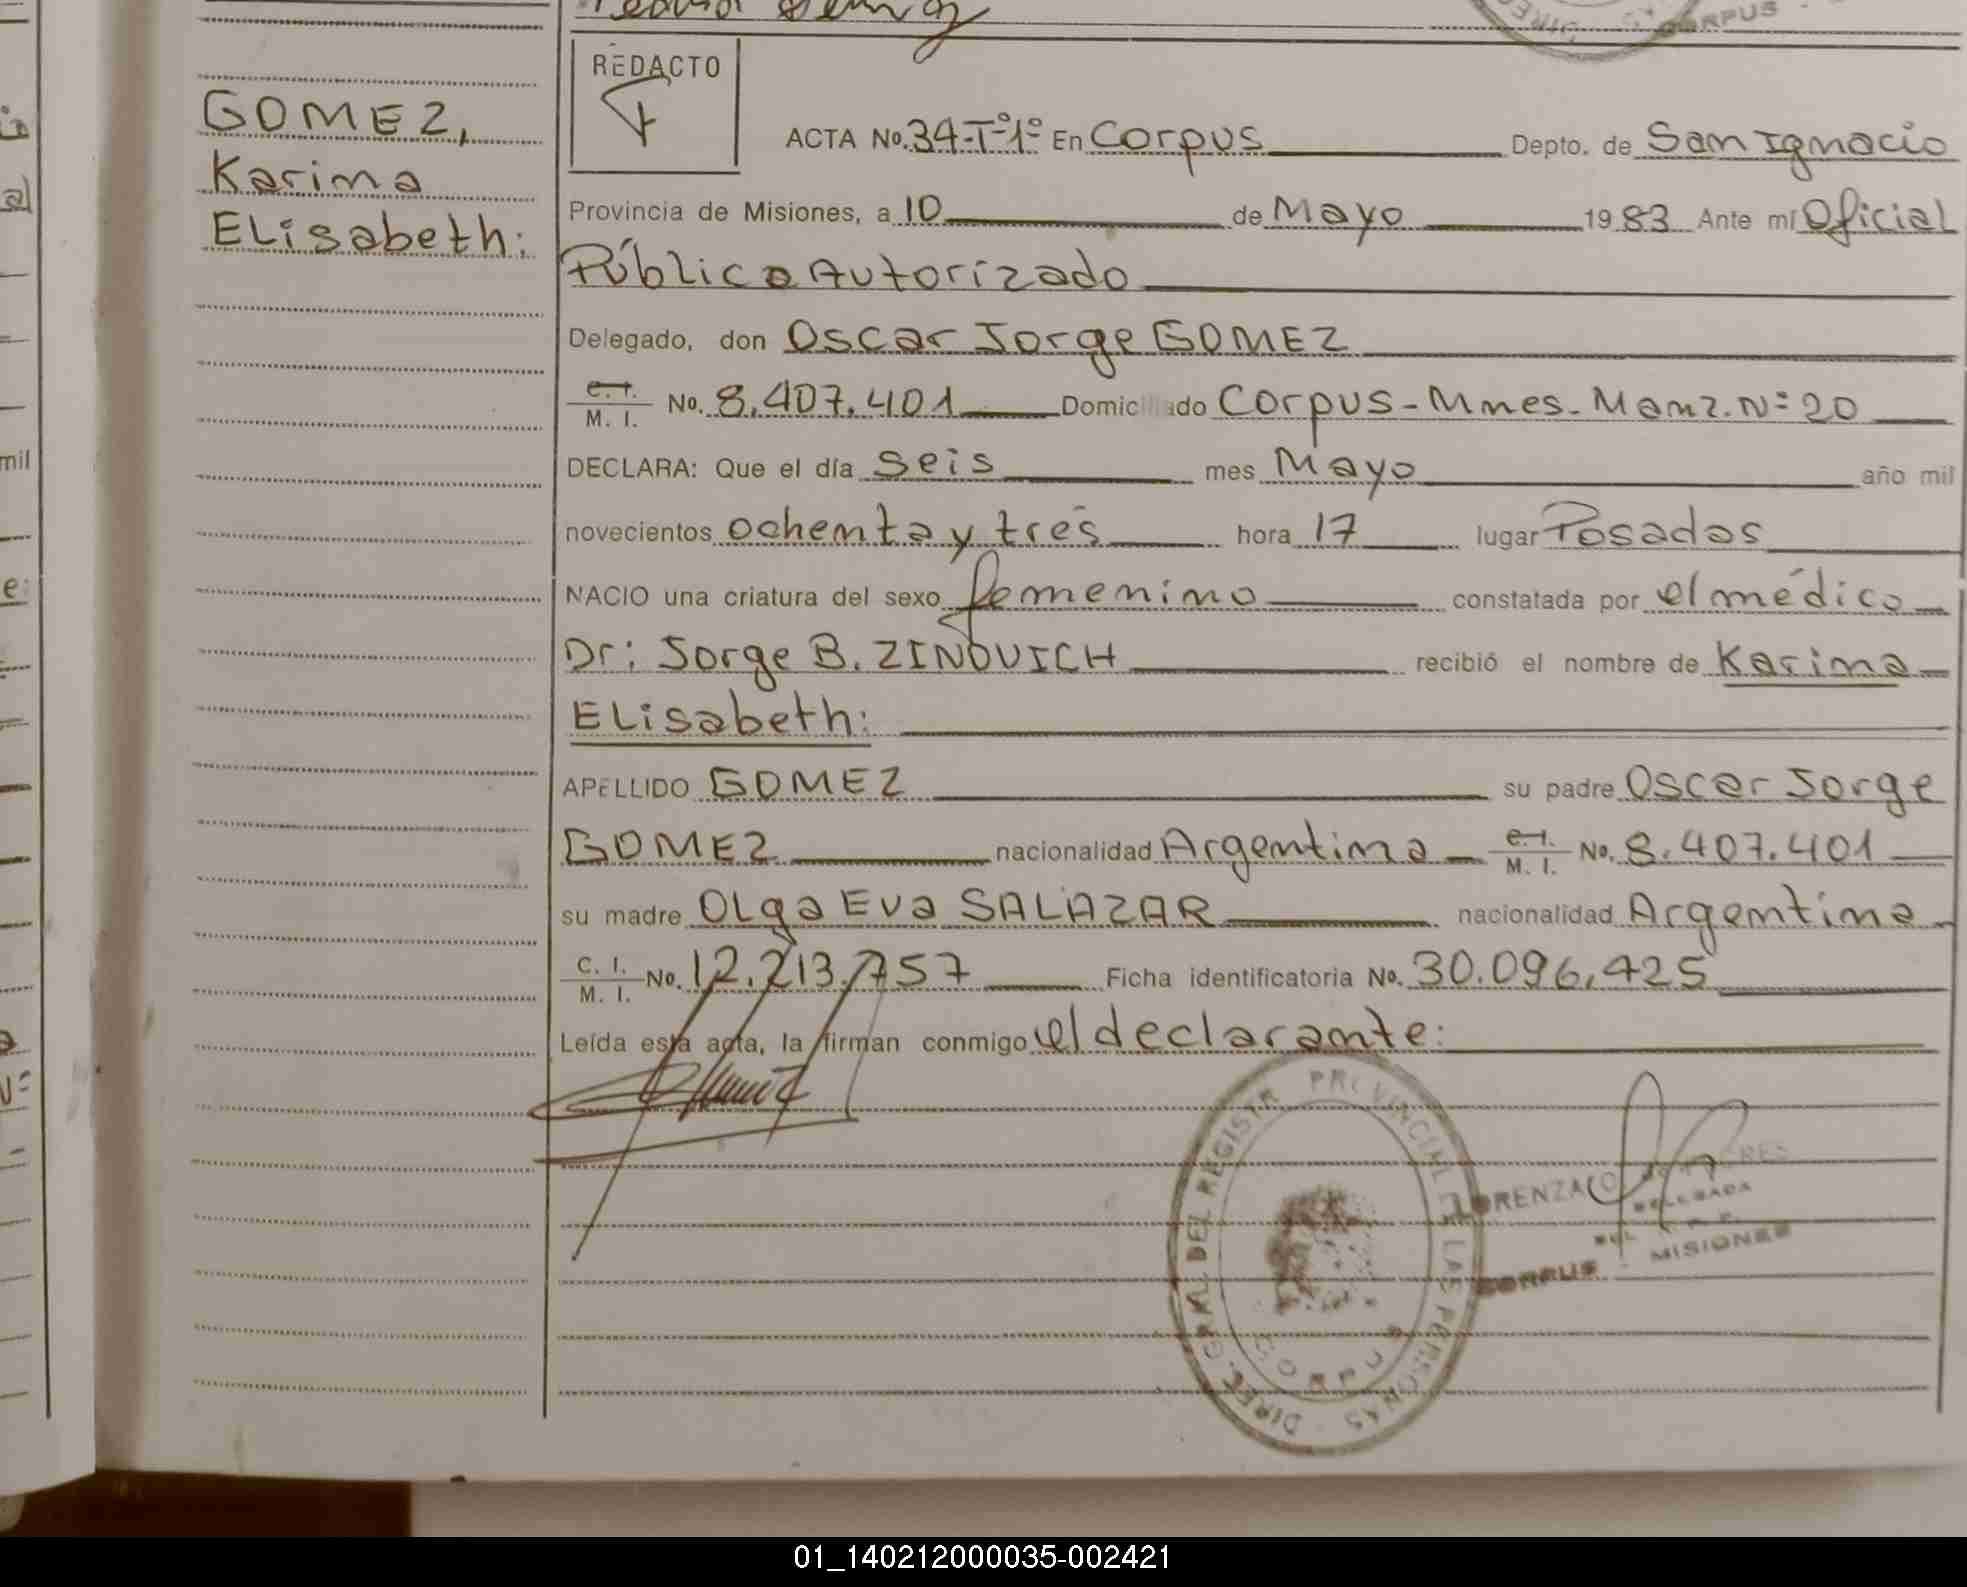 GOMEZ,
Karima
ELisabeth:
REDACTO
ACTA No. 34-Tº1º En Corpus Depto. de San Ignacio
Provincia de Misiones, a 10 de Mayo 1983 Ante mí Oficial
Público Autorizado
Delegado, don Oscar Jorge GOMEZ
C. I. M. I. No. 8.407.401 Domiciliado Corpus - Mnes - Manz. Nº 20
DECLARA: Que el día seis mes Mayo año mil
novecientos ochenta y tres hora 17 lugar Posadas
NACIO una criatura del sexo femenino constatada por el médico
Dr: Jorge B. ZINOVICH recibió el nombre de Karima
ELisabeth:
APELLIDO GOMEZ su padre Oscar Jorge
GOMEZ nacionalidad Argentina C. I. M. I. No. 8.407.401
su madre OLga Eva SALAZAR nacionalidad Argentina
C. I. M. I. No. 12.213.757 Ficha identificatoria No. 30.096.425
Leída esta acta, la firman conmigo el declarante:
DIREC. GRAL. DEL REGISTR PROVINCIAL DE LAS PERSONAS
CORPUS
LORENZA
DELEGADA
CORPUS - MISIONES
01_140212000035-002421